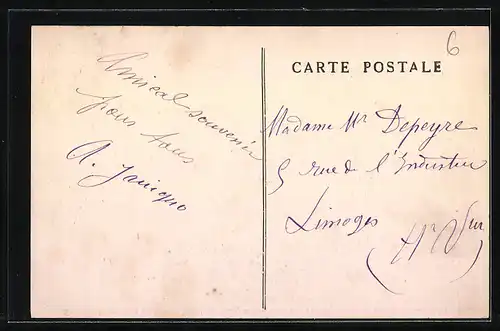 6
CARTE POSTALE
Amical souvenir
pour tous
A.
Madame Mr Depeyre
5 rue de l'Industrie
Limoges
(Hte Vne)